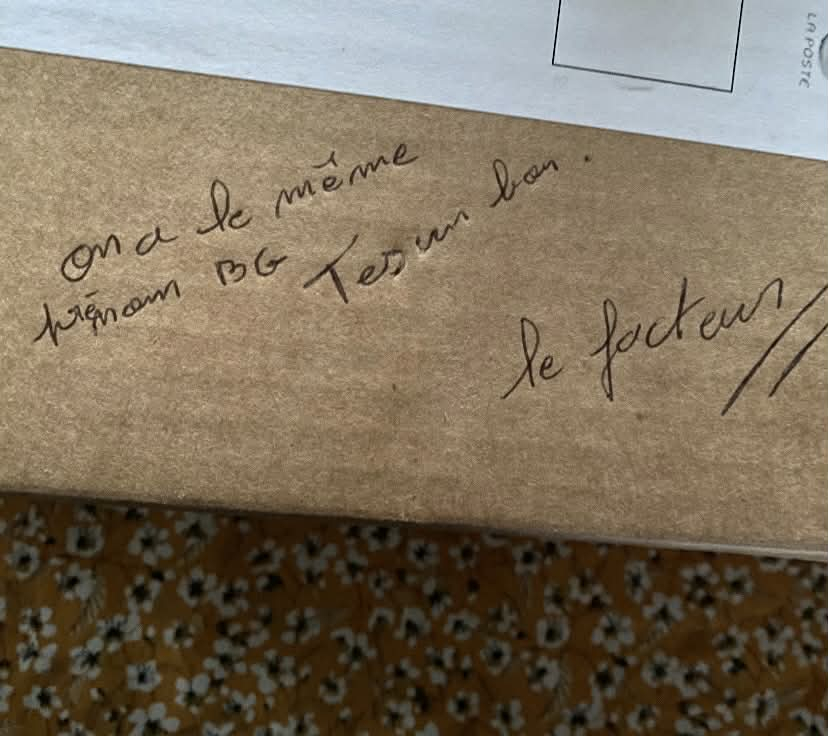 on a le même
prénom BG Tes un bon.
le facteur
LA POSTE